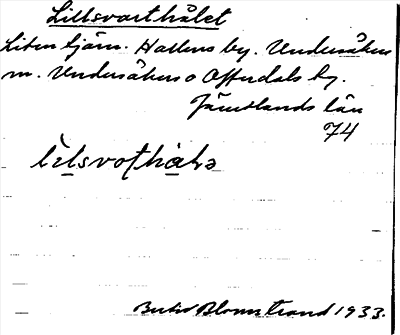 Lillsvarthålet
Liten tjärn. Hallens by. Undersåkers
sn. Undersåkers o Offerdals tg.
Jämtlands län
74
Bertil Blomstrand 1933.